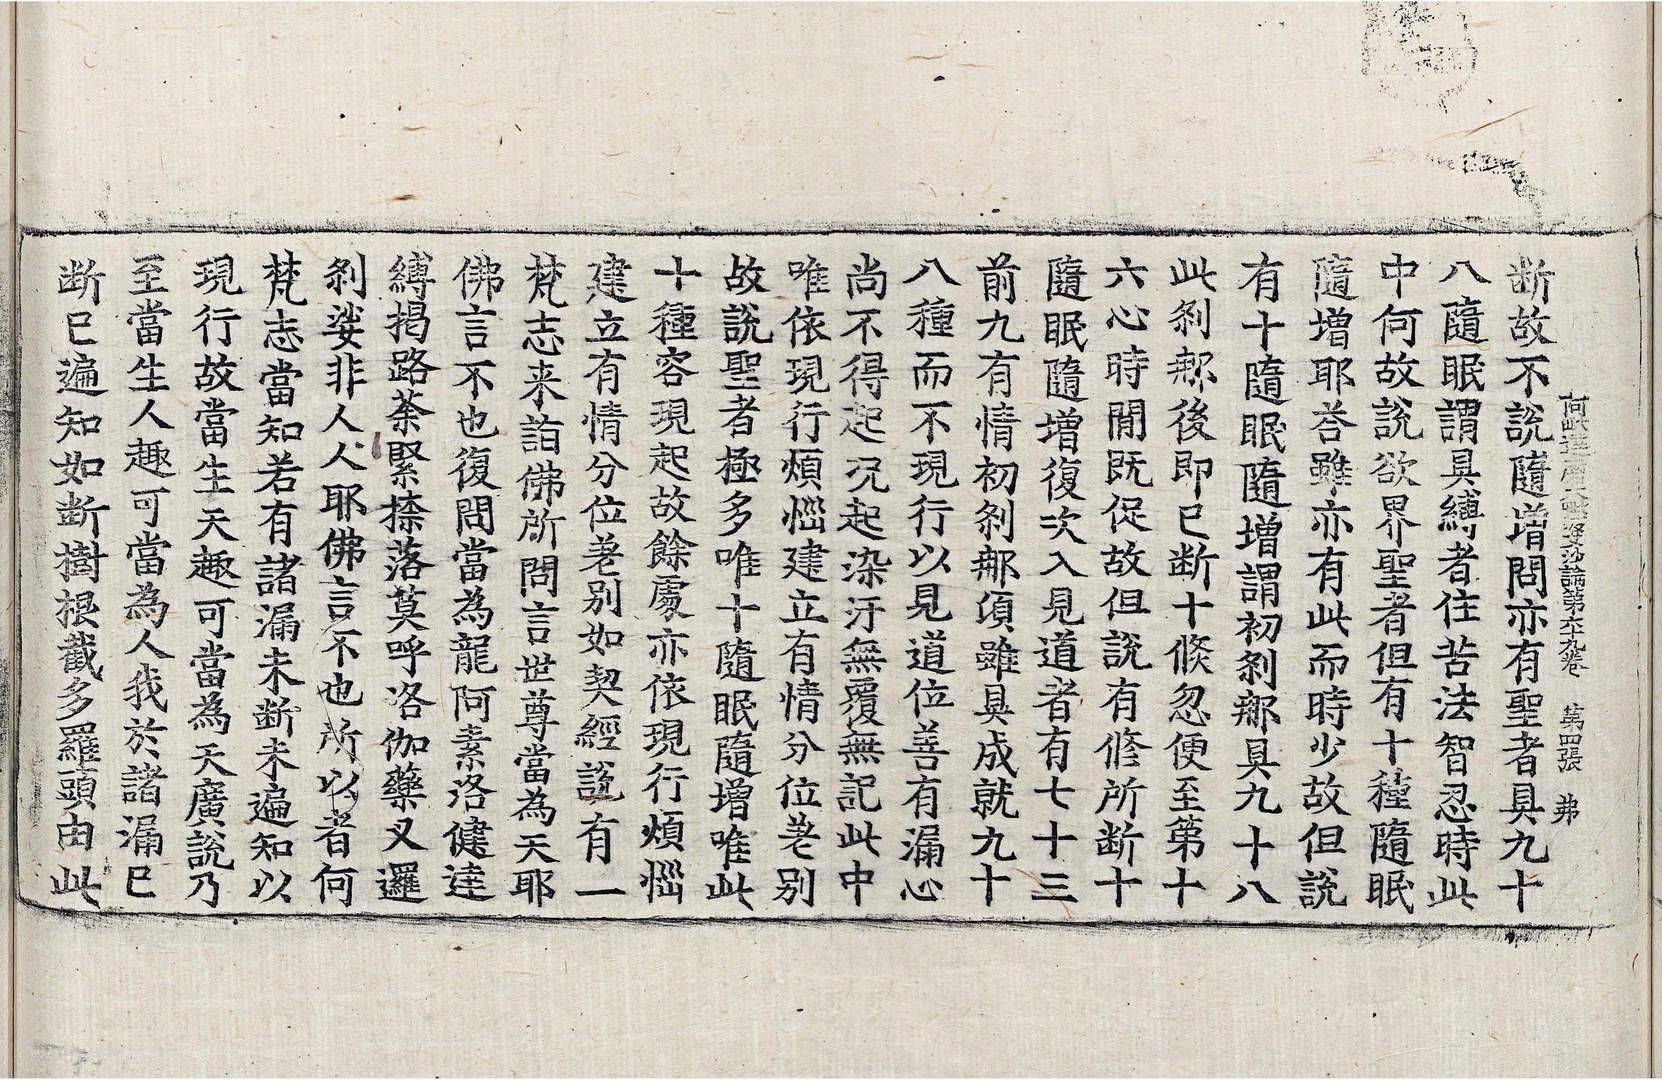 阿毗達磨大毗婆沙論第六十九卷　第四張　弗
断故不說隨增問亦有聖者具九十
八隨眠謂具縛者住苦法智忍時此
中何故說欲界聖者但有十種隨眠
隨增耶荅雖亦有此而時少故但說
有十隨眠隨增謂初刹那具九十八
此刹那後即已断十倐忽便至第十
六心時間既促故但說有脩所断十
隨眠隨增復次入見道者有七十三
前九有情初刹那頃雖具成就九十
八種而不現行以見道位善有漏心
尚不得起况起染汙無覆無記此中
唯依現行煩惱建立有情分位差别
故說聖者極多唯十隨眠隨增唯此
十種容現起故餘處亦依現行煩惱
建立有情分位差别如契經說有一
梵志来詣佛所問言世尊當為天耶
佛言不也復問當為龍阿素洛健達
縛揭路荼緊捺落莫呼洛伽藥叉邏
刹娑非人人耶佛言不也所以者何
梵志當知若有諸漏未断未遍知以
現行故當生天趣可當為天廣說乃
至當生人趣可當為人我於諸漏已
断已遍知如断樹根截多羅頭由此